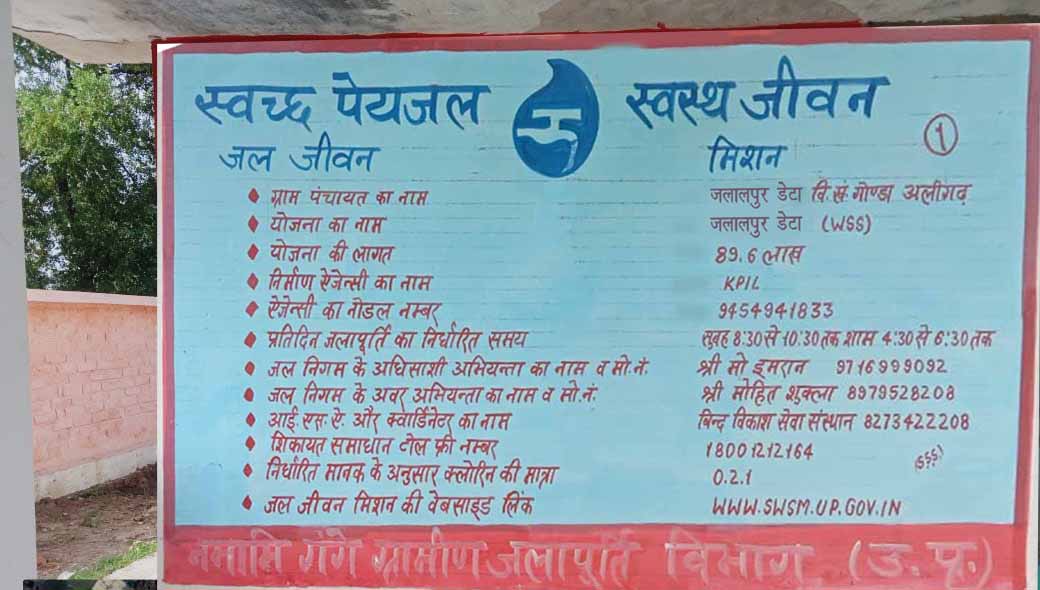 स्वच्छ पेयजल स्वस्थ जीवन
जल जीवन मिशन १
ग्राम पंचायत का नाम जलालपुर डेटा वि.खं. गोण्डा अलीगढ़
योजना का नाम जलालपुर डेटा (WSS)
योजना की लागत 89.6 लाख
निर्माण ऐजेन्सी का नाम KPIL
ऐजेन्सी का नोडल नम्बर 9454941833
प्रतिदिन जलापूर्ति का निर्धारित समय सुबह 8:30 से 10:30 तक शाम 4:30 से 6:30 तक
जल निगम के अधिसाशी अभियन्ता का नाम व मो.नं. श्री मो इमरान 9716999092
जल निगम के अवर अभियन्ता का नाम व मो.नं. श्री मोहित शुक्ला 8979528208
आई.एस.ऐ. और क्वार्डिनेटर का नाम बिन्द विकाश सेवा संस्थान 8273422208
शिकायत समाधान टोल फ्री नम्बर 18001212164
निर्धारित मानक के अनुसार क्लोरिन की मात्रा 0.2.1
जल जीवन मिशन की वेबसाइड लिंक WWW.SWSM.UP.GOV.IN
नमामि गंगे ग्रामीण जलापूर्ति विभाग (उ.प्र.)